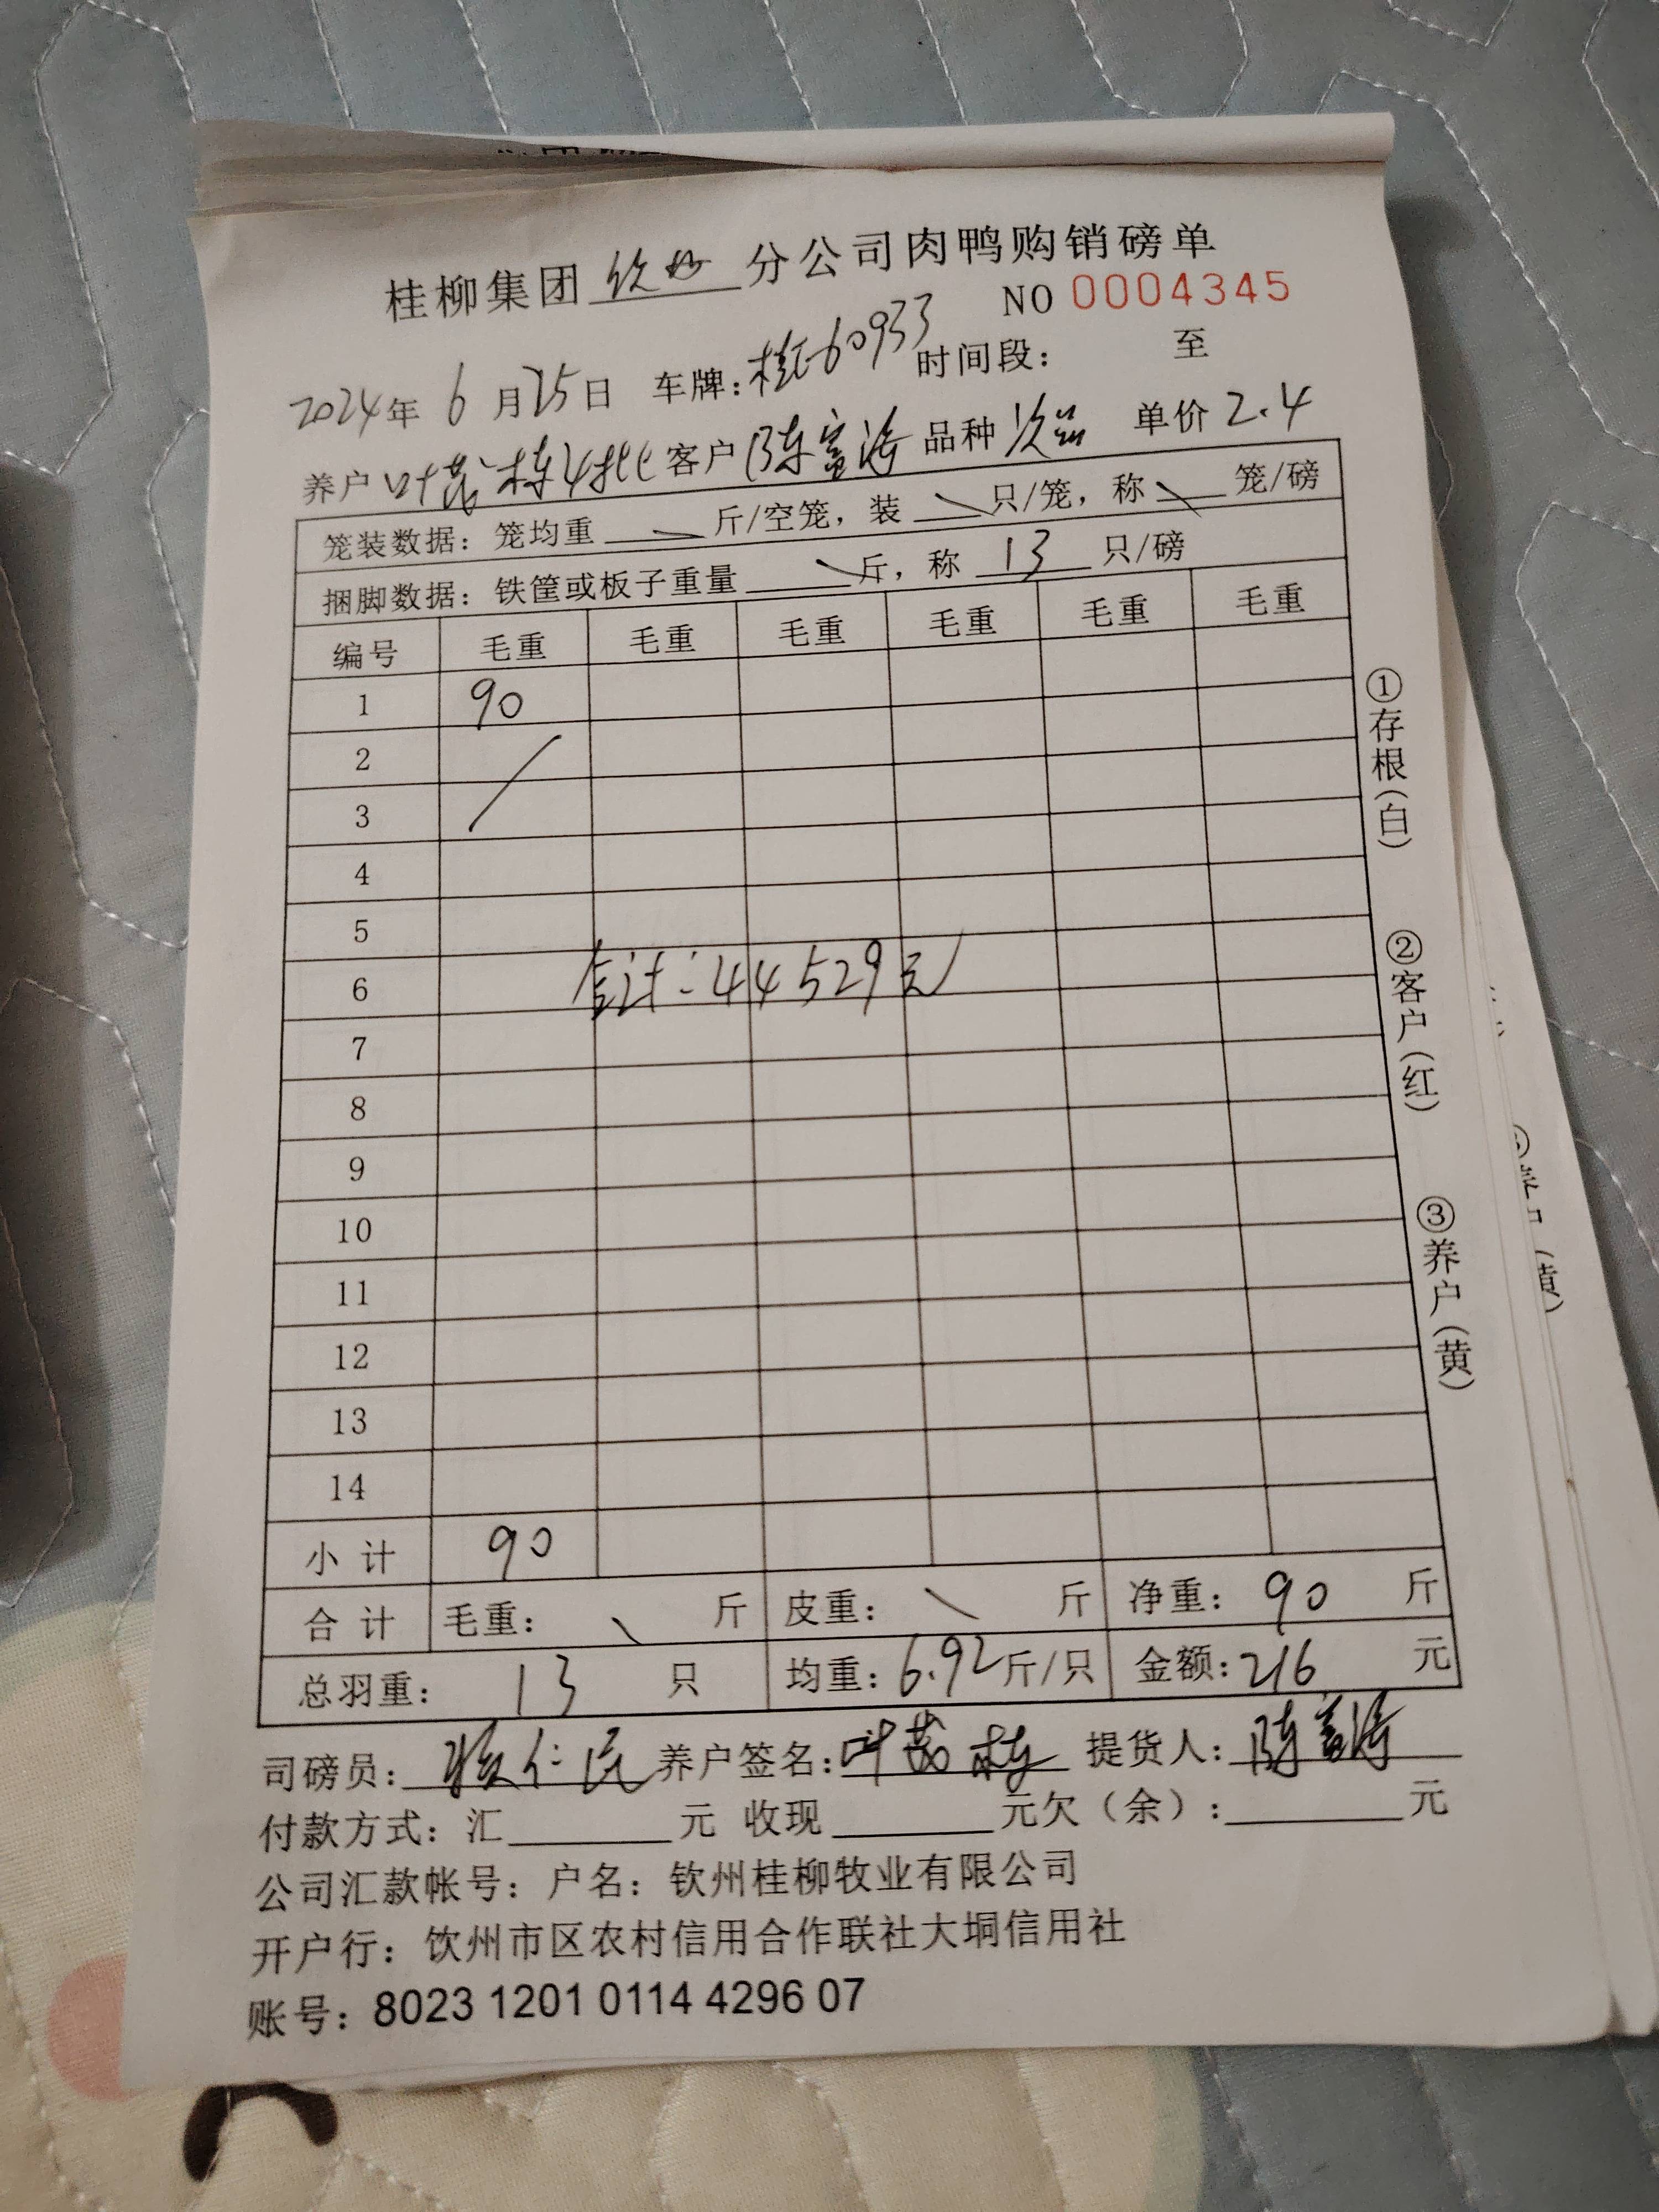 桂柳集团 钦州 分公司肉鸭购销磅单
NO 0004345
2024年 6 月 25 日 车牌: 60933 时间段: 至
养户 叶茂栋4批 客户 陈富海 品种 次品 单价 2.4
笼装数据: 笼均重 斤/空笼, 装 只/笼, 称 笼/磅
捆脚数据: 铁筐或板子重量 斤, 称 13 只/磅
编号 毛重 毛重 毛重 毛重 毛重 毛重
1 90
2
3
4
5
6 合计: 44529元
7
8
9
10
11
12
13
14
小计 90
合计 毛重: 斤 皮重: 斤 净重: 90 斤
总羽重: 13 只 均重: 6.92 斤/只 金额: 216 元
司磅员: 仁 养户签名: 叶茂栋 提货人: 陈富海
付款方式: 汇 元 收现 元欠（余）: 元
公司汇款帐号: 户名: 钦州桂柳牧业有限公司
开户行: 钦州市区农村信用合作联社大垌信用社
账号: 8023 1201 0114 4296 07
①存根(白)
②客户(红)
③养户(黄)